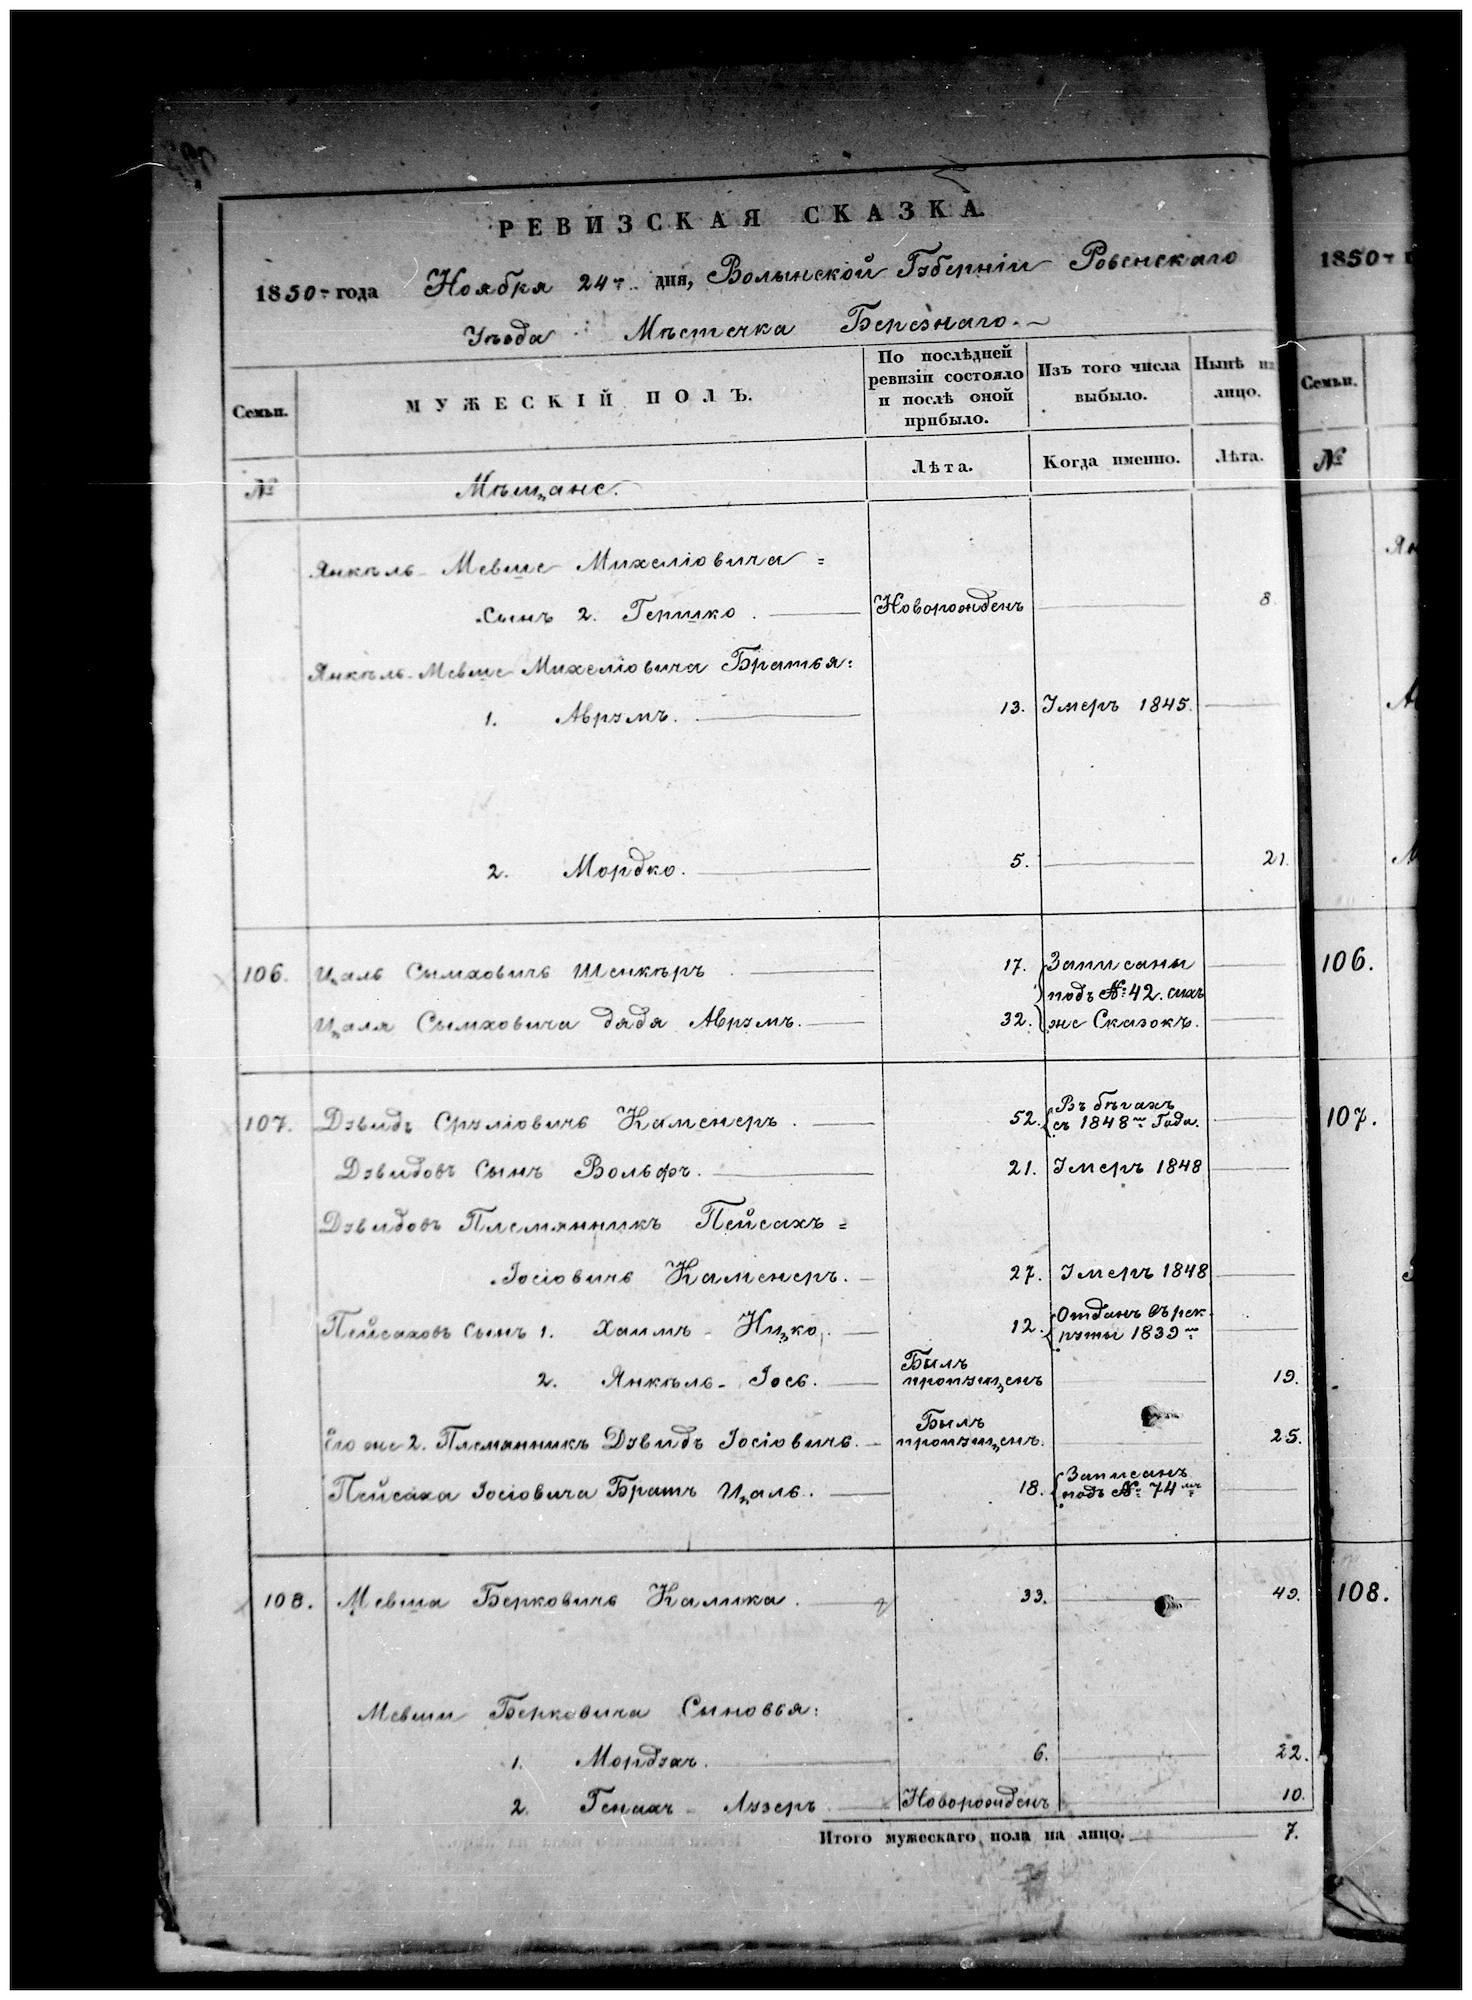 РЕВИЗСКАЯ СКАЗКА.
1850 года Ноября 24 дня, Волынской Губерніи Ровенскаго
Уѣзда Мѣстечка Березнаго.
Семьи.
МУЖЕСКІЙ ПОЛЪ.
По послѣдней ревизіи состояло и послѣ оной прибыло.
Изъ того числа выбыло.
Нынѣ на лицо.
№
Мѣщане.
Лѣта.
Когда именно.
Лѣта.
Янкѣль Мевше Михеліовича =
Сынъ 2. Гершко. Новорожденъ 8.
Янкѣль-Мевше Михеліовича Братья:
1. Аврумъ. 13. Умеръ 1845.
2. Мордко. 5. 21.
106. Цаль Сымховичъ Шенкѣръ 17. Записаны
подъ №: 42. сихъ
Цаля Сымховича дядя Аврумъ. 32. же Сказокъ.
107. Дувидъ Сруліовичъ Каменеръ. 52. Въ бѣгахъ
съ 1848 Года.
Дувидовъ Сынъ Вольфъ. 21. Умеръ 1848
Дувидовъ Племянникъ Пейсахъ =
Іосіовичъ Каменеръ. 27. Умеръ 1848
Пейсаховъ Сынъ 1. Хаимъ - Ицко. 12. Отданъ въ рек-
руты 1839
2. Янкѣль - Іось. Былъ пропущенъ 19.
Его же 2. Племянникъ Дувидъ Іосіовичъ. Былъ пропущенъ. 25.
Пейсаха Іосіовича Братъ Цаль. 18. Записанъ
подъ №: 74
108. Мевша Берковичъ Калика. 33. 49.
Мевши Берковича Сыновья:
1. Мордухъ. 6. 22.
2. Генахъ - Лузеръ Новорожденъ 10.
Итого мужескаго пола на лицо. 7.
1850
Семьи.
№
106.
107.
108.